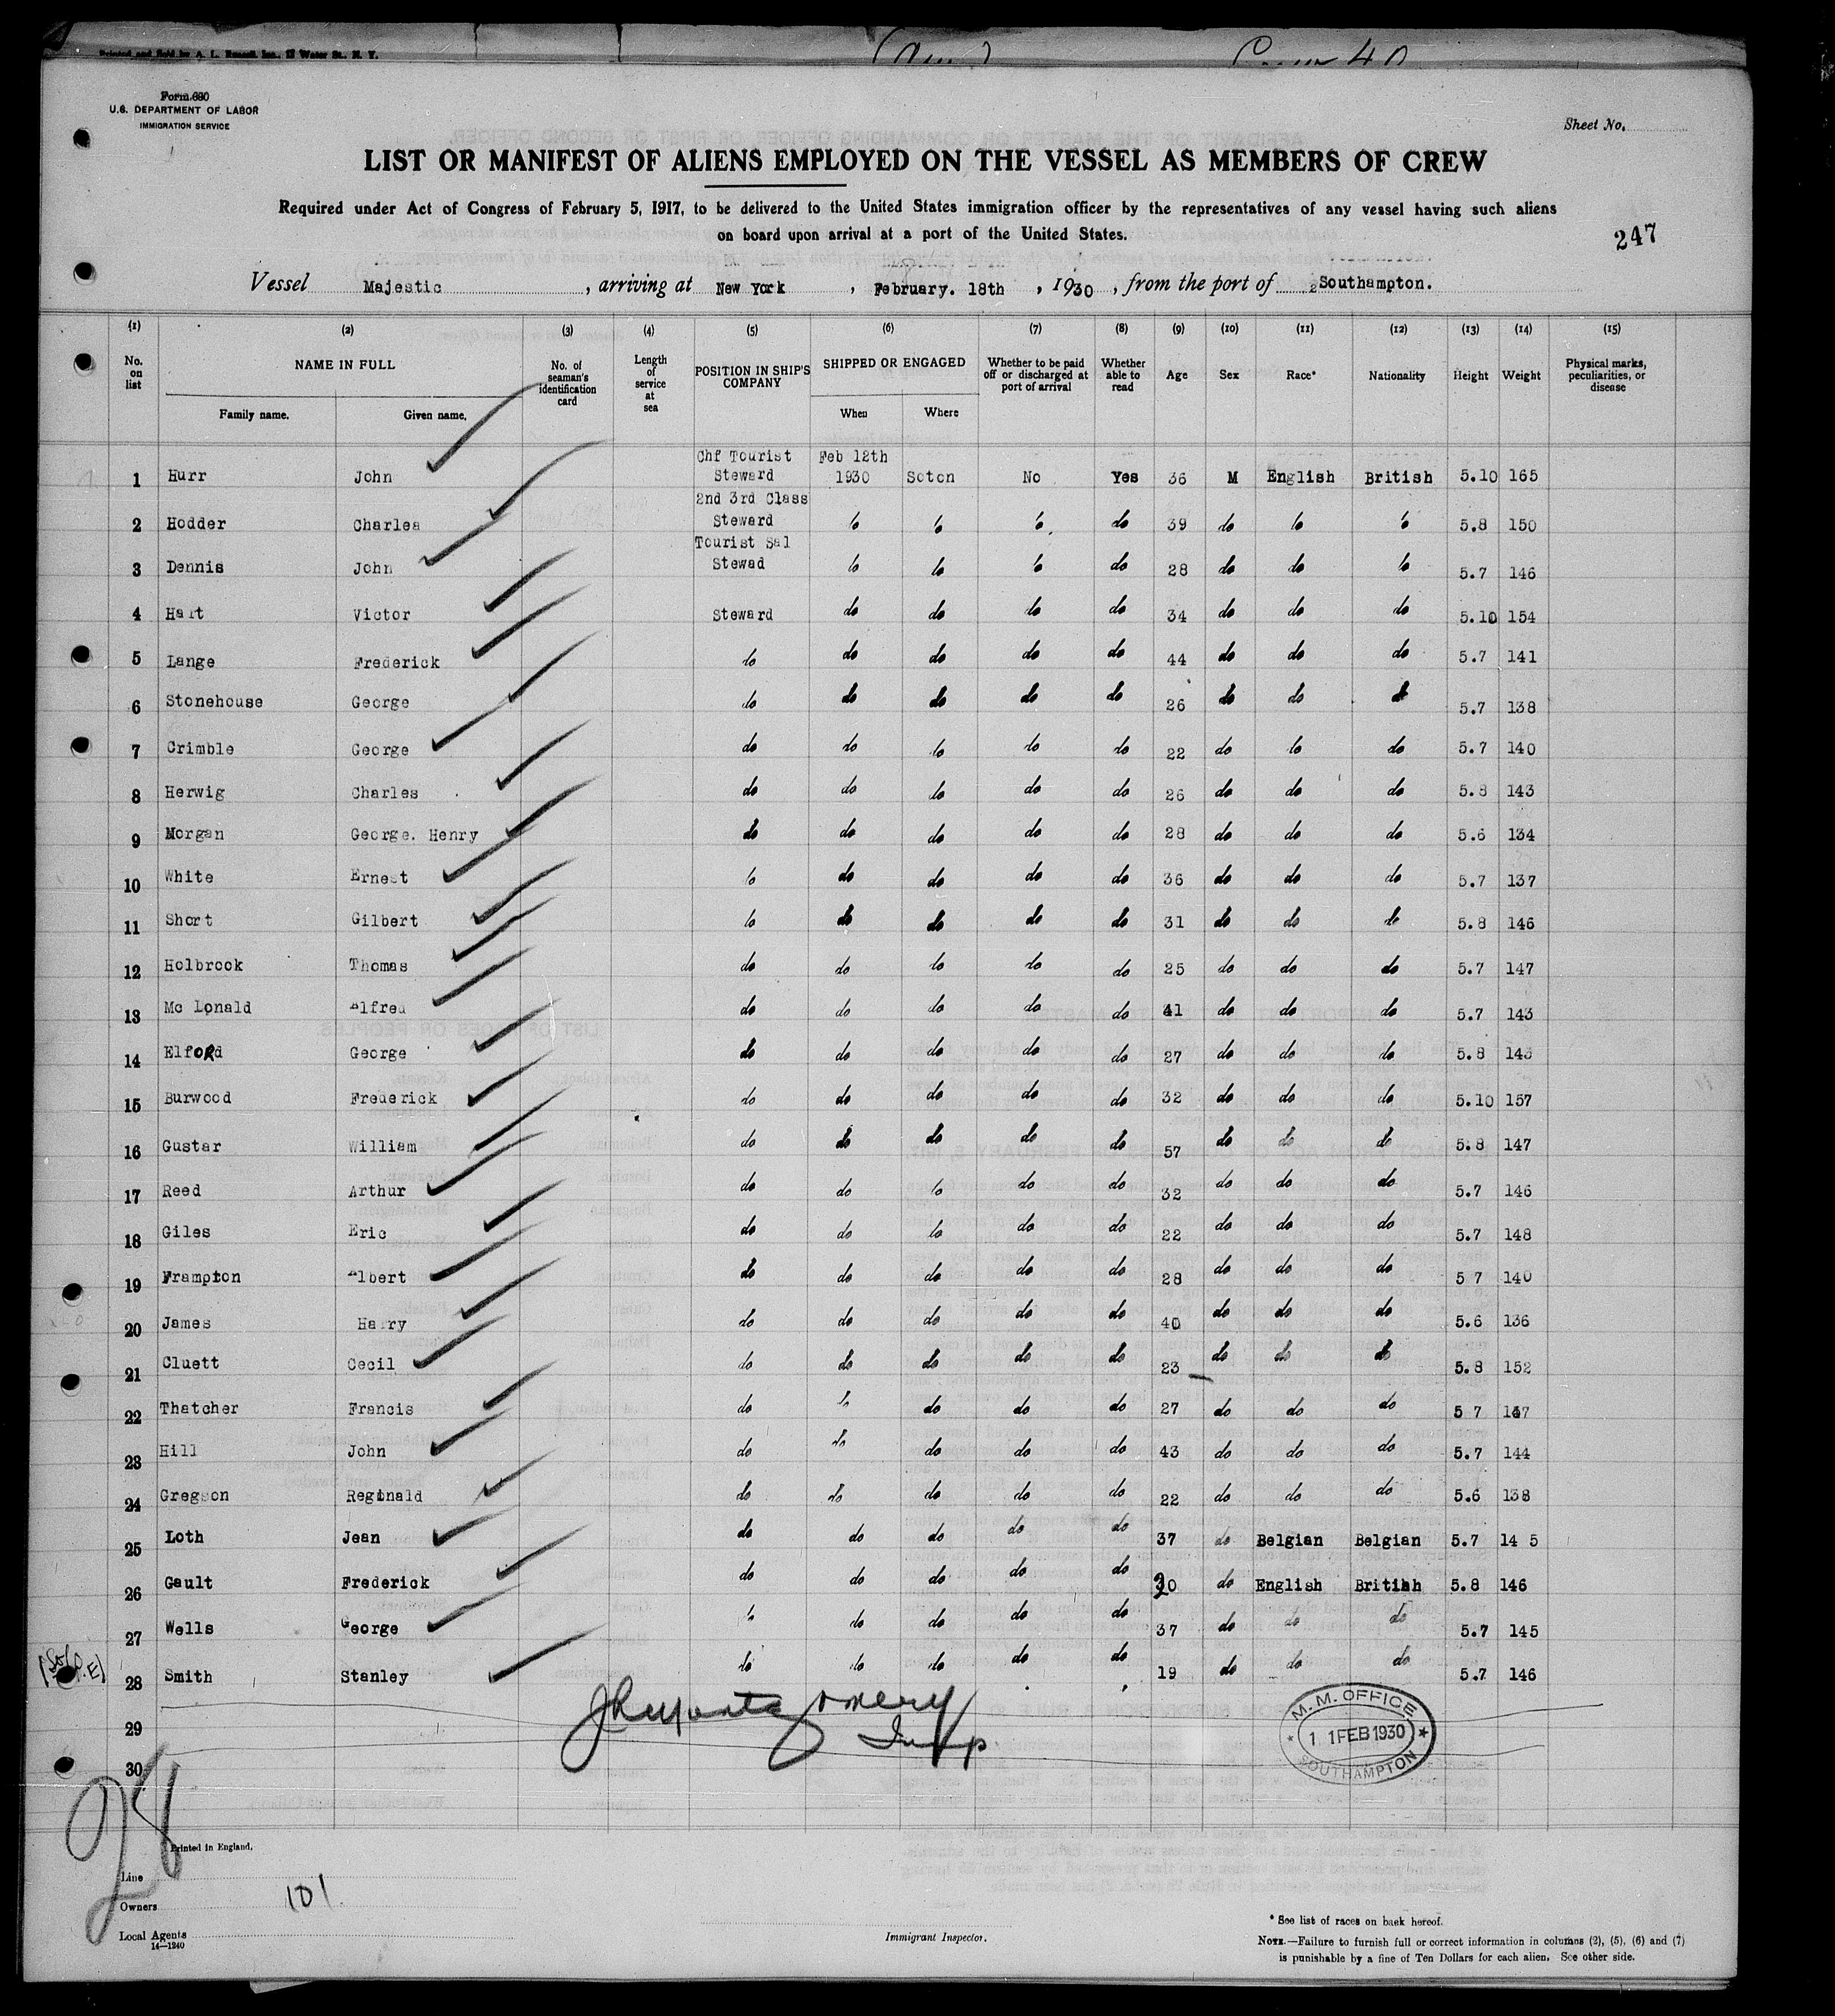 Printed and Sold by A. L. Russell, Inc., 17 Water St., N. Y.
Form 680
U.S. DEPARTMENT OF LABOR
IMMIGRATION SERVICE
Sheet No.
LIST OR MANIFEST OF ALIENS EMPLOYED ON THE VESSEL AS MEMBERS OF CREW
Required under Act of Congress of February 5, 1917, to be delivered to the United States immigration officer by the representatives of any vessel having such aliens
on board upon arrival at a port of the United States.
247
Vessel Majestic, arriving at New York, February. 18th, 1930, from the port of Southampton.
(1) (2) (3) (4) (5) (6) (7) (8) (9) (10) (11) (12) (13) (14) (15)
No. on list NAME IN FULL No. of seaman's identification card Length of service at sea POSITION IN SHIP'S COMPANY SHIPPED OR ENGAGED Whether to be paid off or discharged at port of arrival Whether able to read Age Sex Race* Nationality Height Weight Physical marks, peculiarities, or disease
Family name. Given name. When Where
1 Hurr John Chf Tourist Steward Feb 12th 1930 Soton No Yes 36 M English British 5.10 165
2 Hodder Charles 2nd 3rd Class Steward do do do do 39 do do do 5.8 150
3 Dennis John Tourist Sal Stewad do do do do 28 do do do 5.7 146
4 Hart Victor Steward do do do do 34 do do do 5.10 154
5 Lange Frederick do do do do do 44 do do do 5.7 141
6 Stonehouse George do do do do do 26 do do do 5.7 138
7 Crimble George do do do do do 22 do do do 5.7 140
8 Herwig Charles do do do do do 26 do do do 5.8 143
9 Morgan George. Henry do do do do do 28 do do do 5.6 134
10 White Ernest do do do do do 36 do do do 5.7 137
11 Short Gilbert do do do do do 31 do do do 5.8 146
12 Holbrook Thomas do do do do do 25 do do do 5.7 147
13 Mc Donald Alfred do do do do do 41 do do do 5.7 143
14 Elford George do do do do do 27 do do do 5.8 143
15 Burwood Frederick do do do do do 32 do do do 5.10 157
16 Gustar William do do do do do 57 do do do 5.8 147
17 Reed Arthur do do do do do 32 do do do 5.7 146
18 Giles Eric do do do do do 22 do do do 5.7 148
19 Frampton Albert do do do do do 28 do do do 5 7 140
20 James Harry do do do do do 40 do do do 5.6 136
21 Cluett Cecil do do do do do 23 do do do 5.8 152
22 Thatcher Francis do do do do do 27 do do do 5 7
23 Hill John do do do do do 43 do do do 5.7 144
24 Gregson Reginald do do do do do 22 do do do 5.6 138
25 Loth Jean do do do do do 37 do Belgian Belgian 5.7 14 5
26 Gault Frederick do do do do do 30 do English British 5.8 146
27 Wells George do do do do do 37 do do do 5.7 145
28 Smith Stanley do do do do do 19 do do do 5.7 146
29
30
JR Montgomery
Insp
M.M. OFFICE
11 FEB 1930
SOUTHAMPTON
28
Printed in England.
Line
Owners 101
Local Agents
14—1240
Immigrant Inspector.
* See list of races on back hereof.
NOTE.—Failure to furnish full or correct information in columns (2), (5), (6) and (7)
is punishable by a fine of Ten Dollars for each alien. See other side.